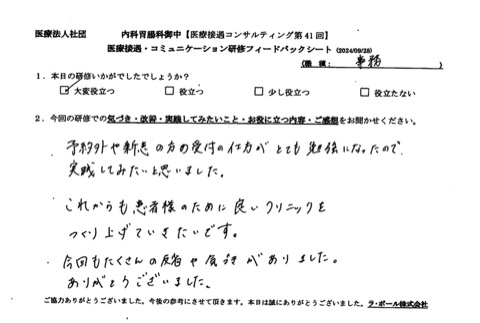 医療法人社団　　内科胃腸科御中【医療接遇コンサルティング第41回】
医療接遇・コミュニケーション研修フィードバックシート（2024/09/28）
（職種： 事務 ）
1．本日の研修いかがでしたでしょうか？
☑ 大変役立つ　□ 役立つ　□ 少し役立つ　□ 役立たない
2．今回の研修での気づき・改善・実践してみたいこと・お役に立つ内容・ご感想をお聞かせください。
予約外や新患の方の受付の仕方がとても勉強になったので、
実践してみたいと思いました。
これからも患者様のために良いクリニックを
つくり上げていきたいです。
今回もたくさんの反省や気づきがありました。
ありがとうございました。
ご協力ありがとうございました。今後の参考にさせて頂きます。本日は誠にありがとうございました。ラ・ポール株式会社